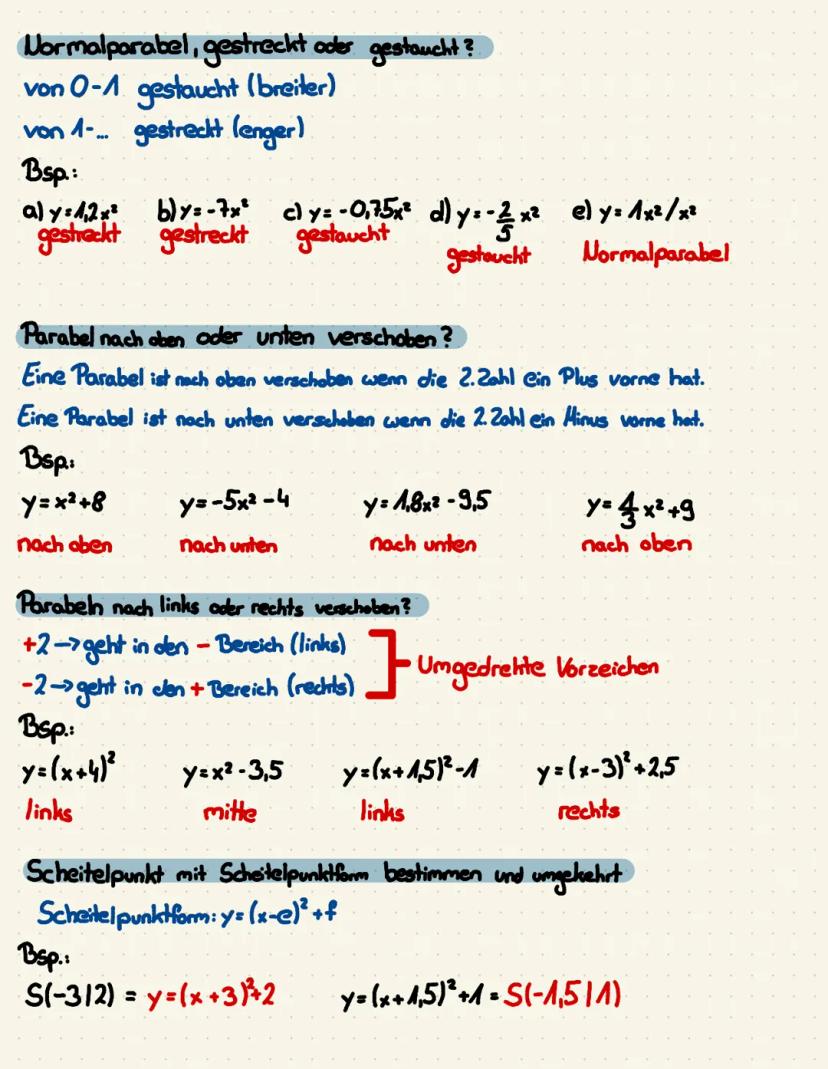 Normalparabel, gestreckt oder gestaucht?
von 0-1 gestaucht (breiter)
von 1-... gestreckt (enger)
Bsp.:
a) y=1,2x² b) y=-7x² c) y=-0,75x² d) y=-2/5 x² e) y=1x²/x²
gestreckt gestreckt gestaucht gestaucht Normalparabel
Parabel nach oben oder unten verschoben?
Eine Parabel ist nach oben verschoben wenn die 2.Zahl ein Plus vorne hat.
Eine Parabel ist nach unten verschoben wenn die 2.Zahl ein Minus vorne hat.
Bsp.:
y=x²+8 y=-5x²-4 y=1,8x²-9,5 y=4/3 x²+9
nach oben nach unten nach unten nach oben
Parabeln nach links oder rechts verschoben?
+2→geht in den - Bereich (links)
-2→geht in den + Bereich (rechts)
Umgedrehte Vorzeichen
Bsp.:
y=(x+4)² y=x²-3,5 y=(x+1,5)²-1 y=(x-3)²+2,5
links mitte links rechts
Scheitelpunkt mit Scheitelpunktform bestimmen und umgekehrt
Scheitelpunktform: y=(x-e)²+f
Bsp.:
S(-3|2) = y=(x+3)²+2 y=(x+1,5)²+1 = S(-1,5|1)